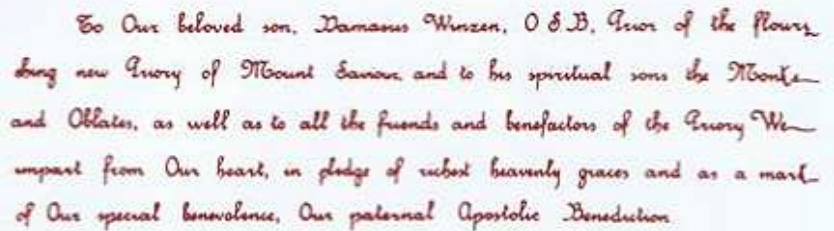 To Our beloved son, Damasus Winzen, O S.B, Prior of the flouri
shing new Priory of Mount Saviour, and to his spiritual sons the Monks
and Oblates, as well as to all the friends and benefactors of the Priory We
impart from Our heart, in pledge of richest heavenly graces and as a mark
of Our special benevolence, Our paternal Apostolic Benediction